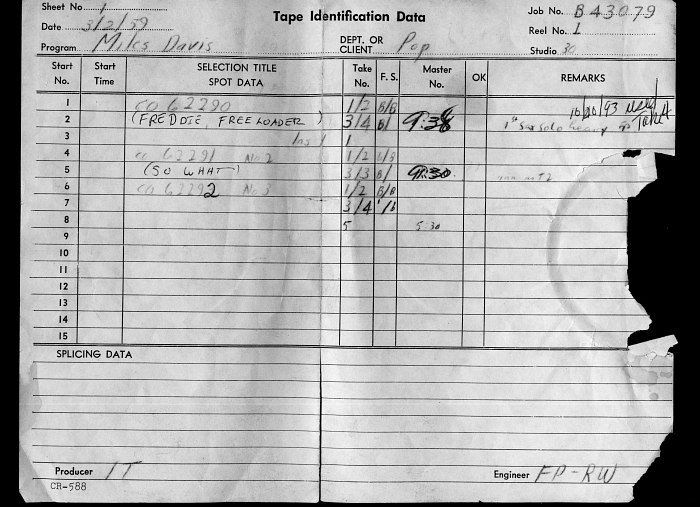 Sheet No 1 Tape Identification Data Job No. B 43079
Date 3/2/59 Reel No. 1
Program Miles Davis DEPT. OR CLIENT Pop Studio 30
Start No. Start Time SELECTION TITLE SPOT DATA Take No. F. S. Master No. OK REMARKS
1 CO 62290 1/2 B/B 10/20/93 used
2 (FREDDIE FREELOADER) 3/4 B/ 9:38 1st Sax solo heavy Take 4
3 Ins 1 1
4 CO 62291 No 2 1/2
5 (SO WHAT) 3/3 B/ 9:30
6 CO 62292 No 3 1/2 B/B
7 3/4
8 5 5:30
9
10
11
12
13
14
15
SPLICING DATA
Producer IT Engineer FP-RW
CR-588